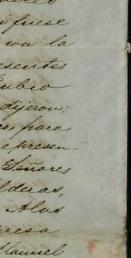 i fuese
va la
esentes
Rubio
dijeron:
os para
e presen-
Señores
lderas,
Alas
eresa
Manuel